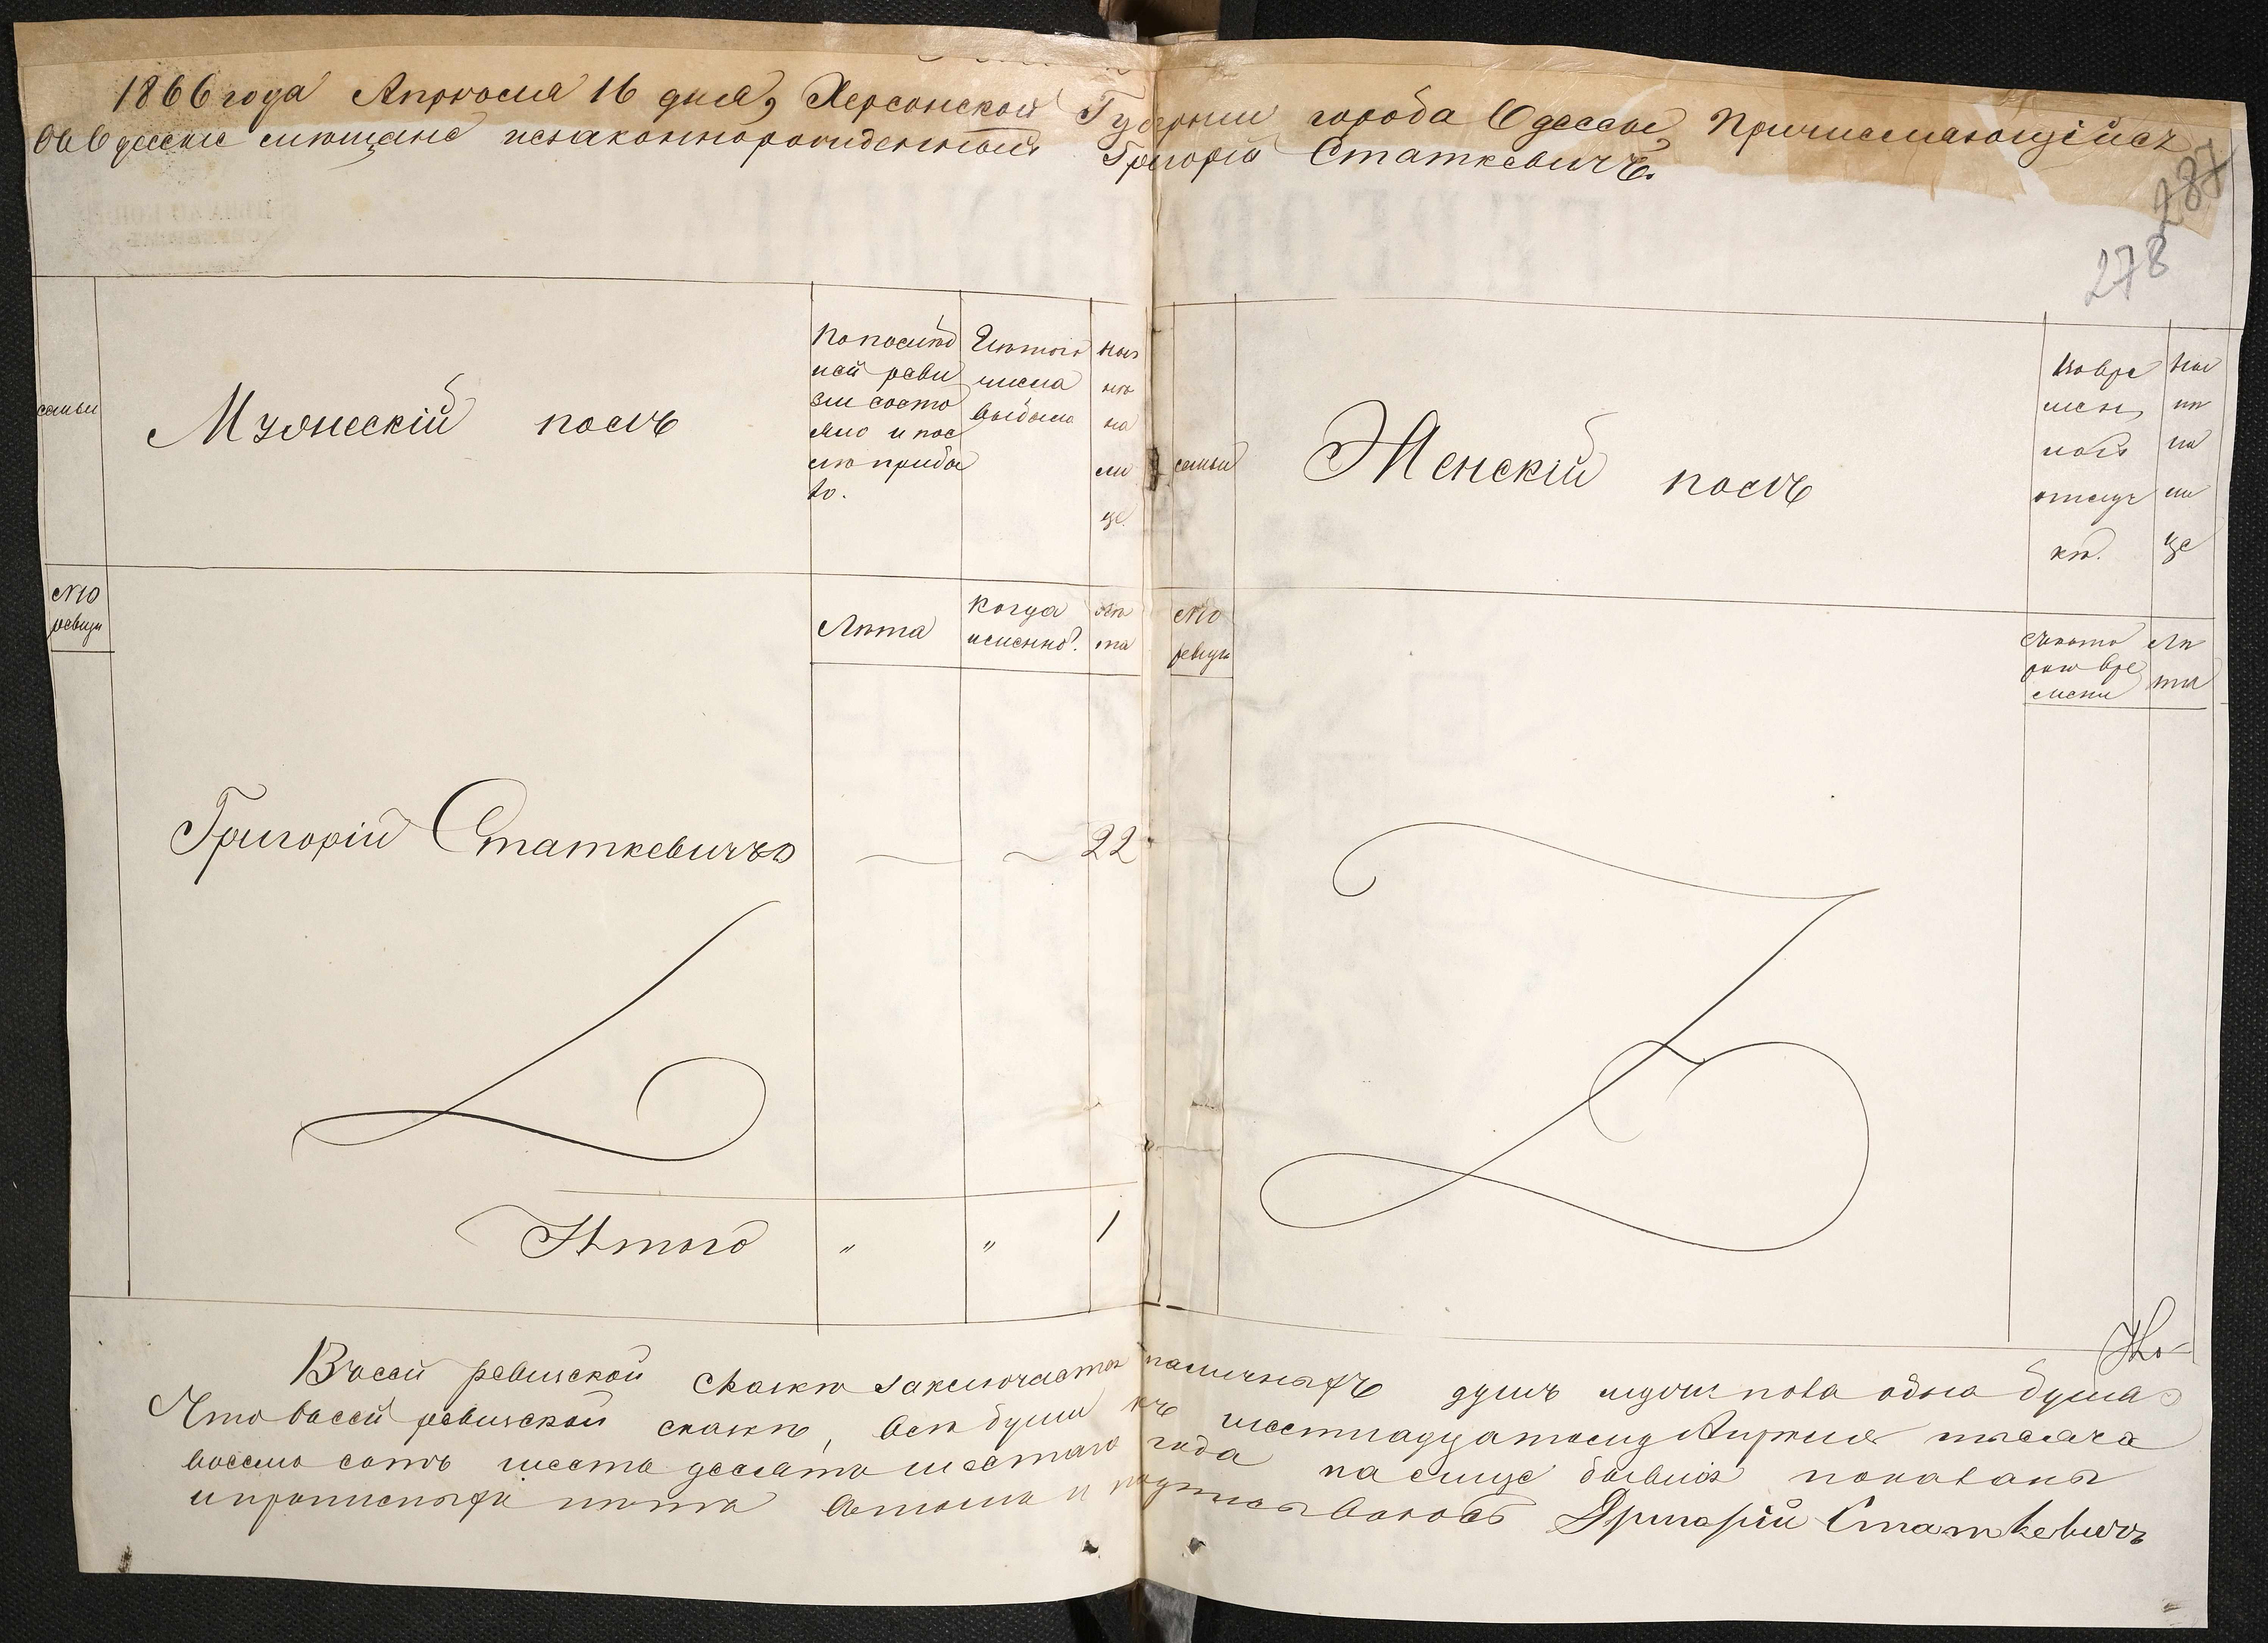 1866 года Апрѣля 16 дня, Херсонской Губерніи города Одессы, Причисляющійся
въ Одесскіе мѣщане незаконнорожденный Григорій Статкевичъ.
287
278
семьи
Мужескій полъ
По послѣд
ней реви
зіи состо
яло и пос
лѣ прибы
ло.
Изъ того
числа
выбыло
Ны
нѣ
на
ли
це
семьи
Женскій полъ
Во вре
мен
ной
отлуч
кѣ.
Ны
нѣ
на
ли
це
№
ревиз
Лѣта
Когда
именно?
Лѣ
та
№
ревиз
Съ кото
раго вре
мени
Лѣ
та
Григорій Статкевичъ — — 22
Итого " " 1
Въ сей ревизской сказкѣ заключается наличныхъ душъ муж: пола одна душа
Что въ сей ревизской сказкѣ, всѣ души къ шестнадцатому Апрѣля тысяча
восемь сотъ шесть десятъ шестаго года на лице бывшія показаны
и прописныхъ нѣтъ въ томъ и подписываюсь Григорій Статкевичъ